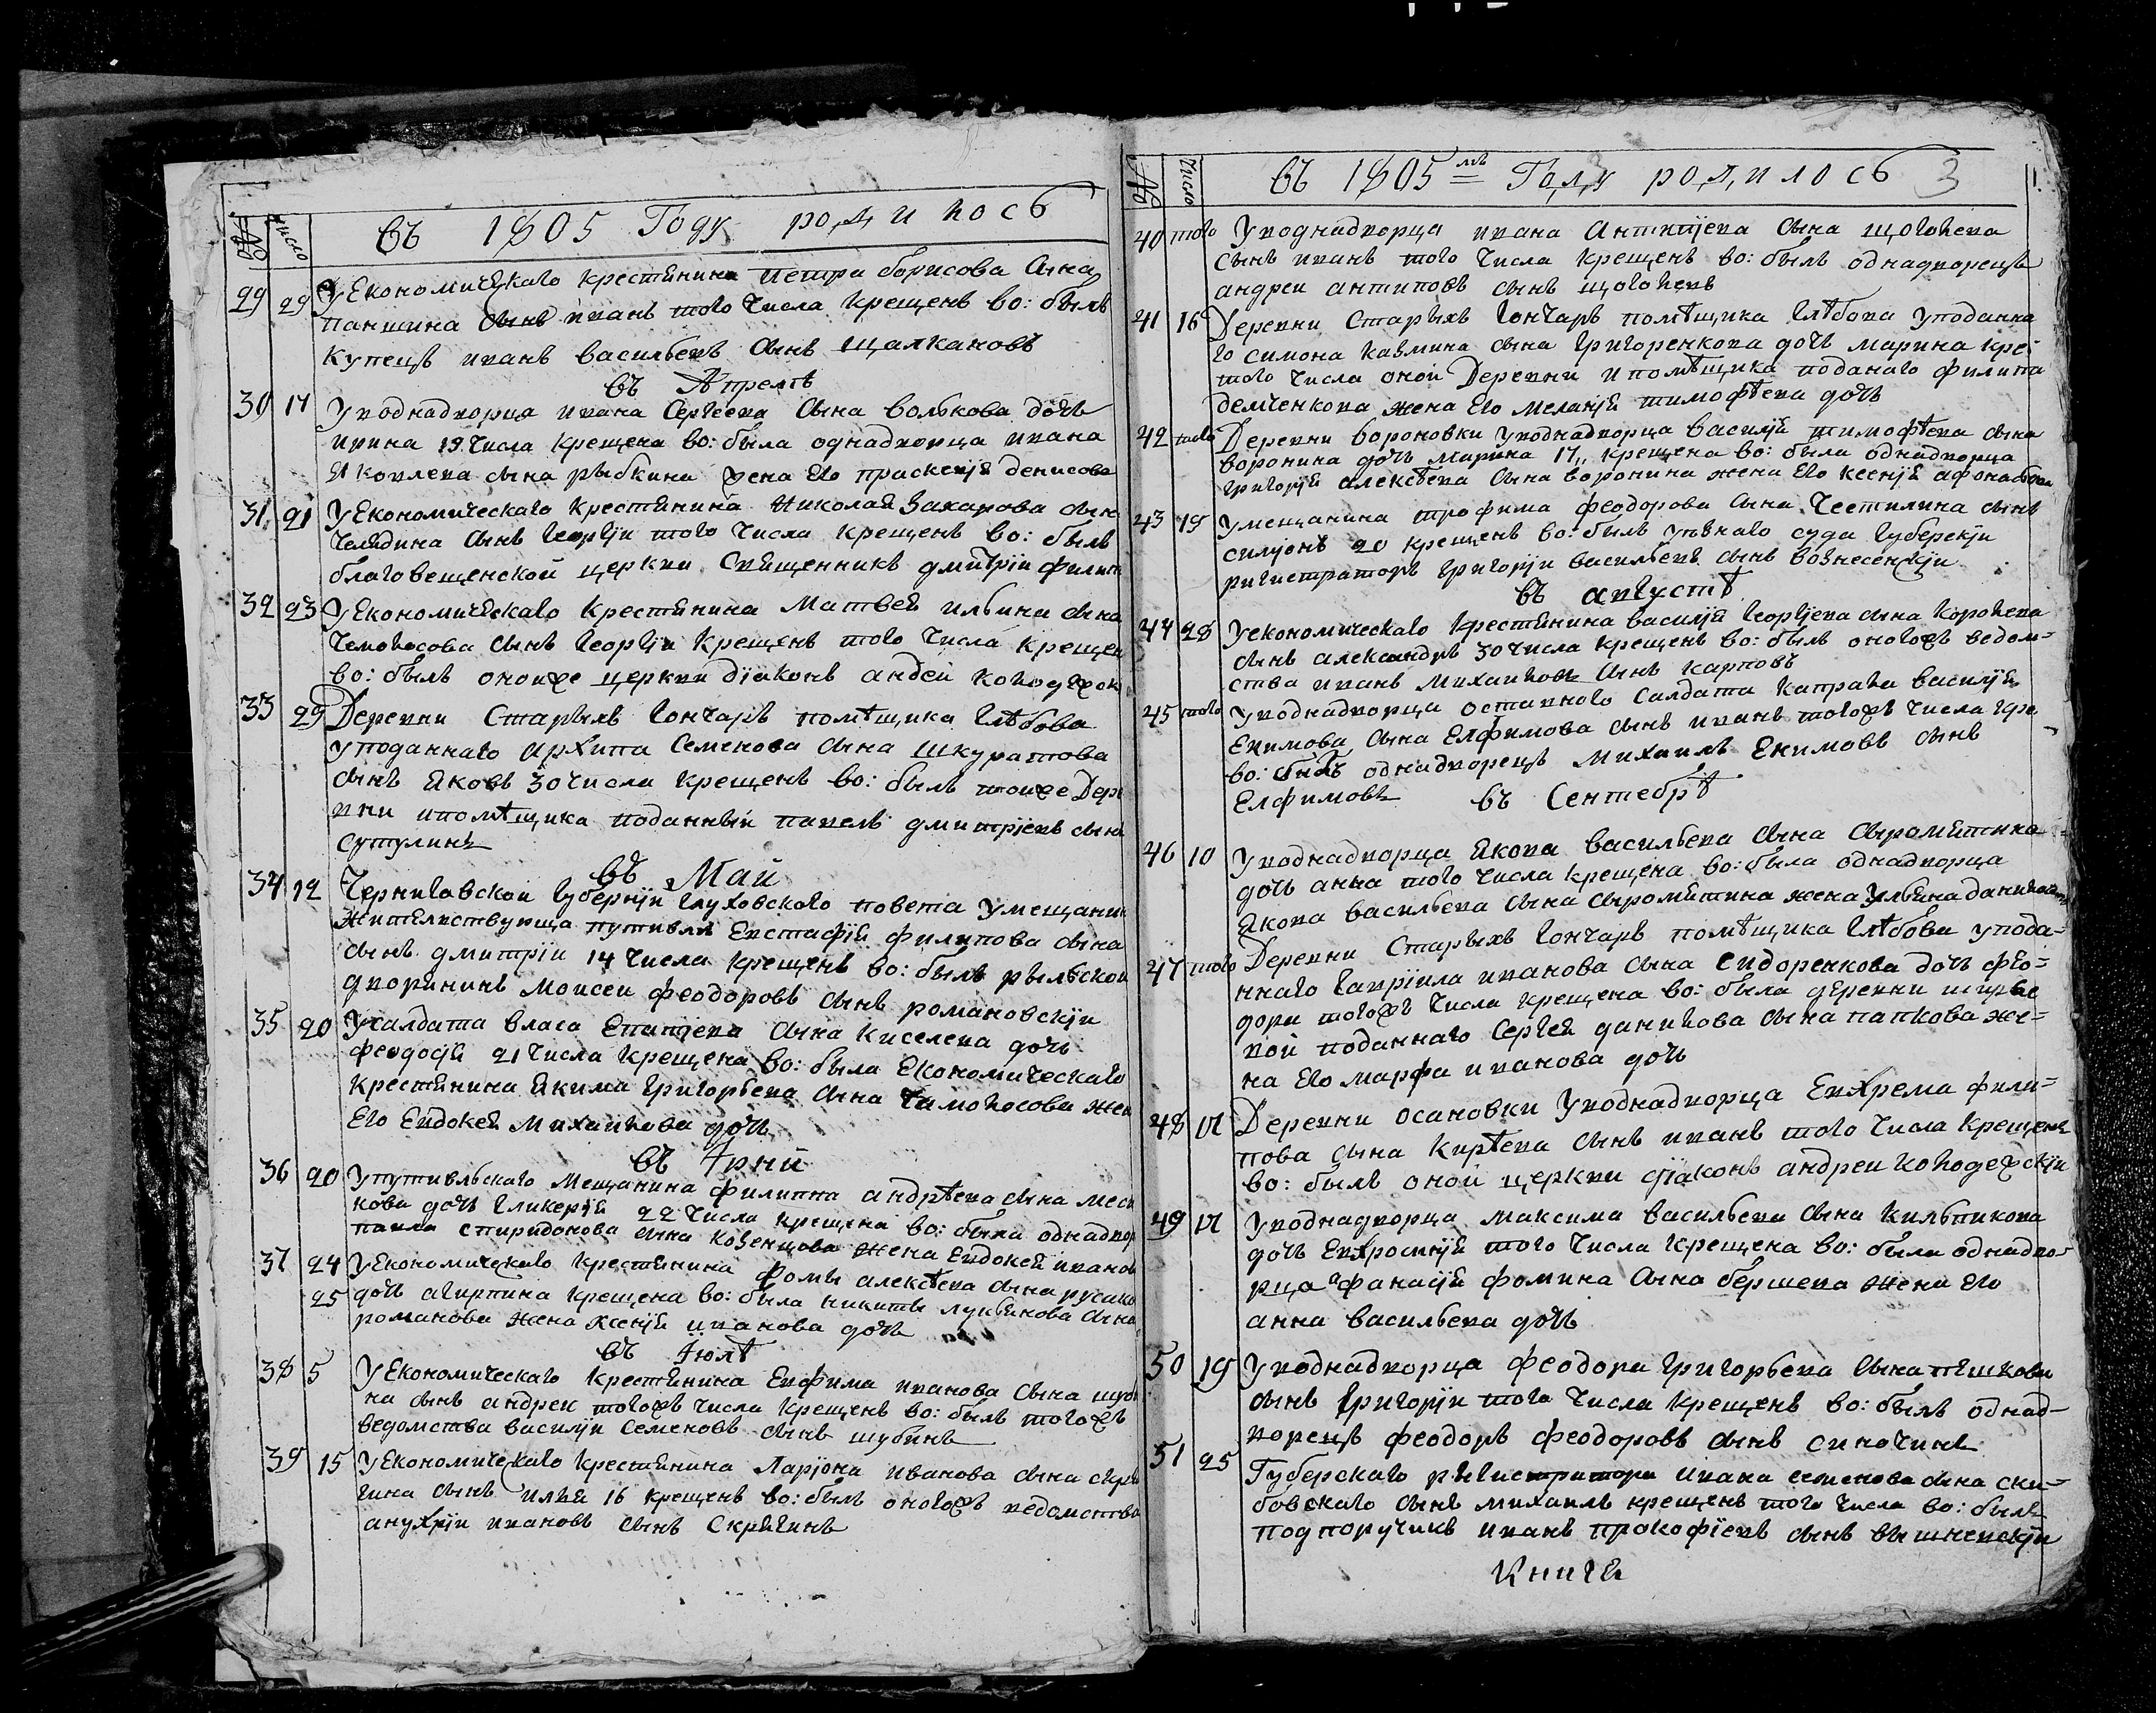 № число въ 1805 Году родилось
29 29 У Економическаго крестянина петра борисова сына
паншина сынъ иванъ того числа крещенъ во: былъ
купецъ иванъ васильевъ сынъ щалкановъ
въ Апрелѣ
30 17 У воднадворца ивана Сергеева сына волькова дочь
ирина 19 числа крещена во: была однадворца ивана
Яковлева сына рыбкина жена Его праскевія денисова
31 21 У Економическаго крестянина Николая Захарова сын
челядина сынъ георгіи того числа крещенъ во: былъ
благовещенской церкви Священникъ дмитріи филип
32 23 У Економическаго крестянина Матвея ильина сына
чемолосова сынъ георгіи крещенъ того числа крещен
во: былъ оноиже церкви діяконъ андей колодежск
33 29 Деревни Старыхъ гончаръ помѣщика глѣбова
уподаннаго архипа Семенова сына шкуратова
сынъ Яковъ 30 числа крещенъ во: былъ тоиже Дере
вни ипомѣщика поданный павелъ дмитріевъ сынъ
сутулинъ
въ Май
34 12 Черниговской губерніи глуховского повета умещанин
жителствующа путивля Евстафія филипова сына
сынъ дмитріи 14 числа крещенъ во: былъ рыльской
дворининъ Моисеи феодоровъ сынъ романовскіи
35 20 Усалдата власа Епатіева сына киселева дочь
феодосія 21 числа крещена во: была Економическаго
крестянина Якима григорьева сына чамолосова жен
Его Евдокея Михаилова дочь
въ Іюни
36 20 Упутивльскаго мещанина филиппа андрѣева сына
нова дочь гликерія 22 числа крещена во: была однадвор
павла спиридонова сына козенцова жена Евдокея иванов
37 24 У Економическаго крестянина фомы алексѣева сына русако
25 дочь агрипина крещена во: была никиты лукьянова сына
романова жена ксенія иванова дочь
въ Іюлѣ
38 5 У Економическаго крестянина Евфима иванова сына шуби
на сынъ андреи тогожъ числа крещенъ во: былъ тогожъ
ведомства василіи Семеновъ сынъ шубинъ
39 15 У Економическаго крестянина Ларіона иванова сына скря
гина сынъ илья 16 крещенъ во: былъ оногожъ ведомства
анухріи ивановъ сынъ Скрягинъ
№ число въ 1805мъ Году родилось 3
40 того У воднадворца ивана Антипіева сына щоголева
сынъ иванъ того числа крещенъ во: былъ однадворецъ
андреи антиповъ сынъ щоголевъ
41 16 Деревни Старыхъ гончаръ помѣщика глѣбова уподанна
го симона казмина сына григоренкова дочь марина кре:
того числа оной Деревни ипомѣщика поданаго филипа
демченкова жена Его меланія тимофѣева дочь
42 того Деревни вороновки У воднадворца василія тимофѣева сына
воронина дочь марина 17,, крещена во: была однадворца
григорія алексѣева сына воронина жена Его ксенія
43 19 Умещанина трофима феодорова сына Честилина сынъ
симіонъ 20 крещенъ во: былъ уѣзнаго суда губерскіи
ригистраторъ григоріи васильевъ сынъ вознесенскіи
въ августѣ
44 28 Уекономическаго крестянина василія георгіева сына королева
сынъ александръ 30 числа крещенъ во: былъ оногожъ ведом=
ства иванъ михаиловъ сынъ карповъ
45 того У воднадворца оставного салдата капрала василія
Екимова сына Елфимова сынъ иванъ тогожъ числа кре
во: былъ однадворецъ михаилъ Екимовъ сынъ
Елфимовъ въ Сентебрѣ
46 10 У воднадворца Якова васильева сына сыромятина
дочь анна того числа крещена во: была однадворца
Якова васильева сына сыромятина жена Ульяна данилова
47 того Деревни Старыхъ гончаръ помѣщика глѣбова упода=
ннаго гавріила иванова сына Сидоренкова дочь фео=
дора тогожъ числа крещена во: была деревни ширяе
вой поданнаго Сергея данилова сына папкова же=
на Его марфа иванова дочь
48 17 Деревни осановки У воднадворца Евхрема фили=
пова сына Кирѣева сынъ иванъ того числа крещенъ
во: былъ оной церкви діяконъ андреи колодежскіи
49 17 У воднадворца максима васильева сына кильпикова
дочь Евхросинія того числа крещена во: была однадво=
рца афанасія фомина сына бершева жена Его
анна васильева дочь
50 19 У воднадворца феодора григорьева сына пѣшкова
сынъ григоріи того числа крещенъ во: былъ однад=
ворецъ феодоръ феодоровъ сынъ синочинъ
51 25 Губерскаго ригистратора ивана семенова сына ски=
бовскаго сынъ михаилъ крещенъ того числа во: былъ
подпоручикъ иванъ прокофіевъ сынъ вышневскіи
Книга